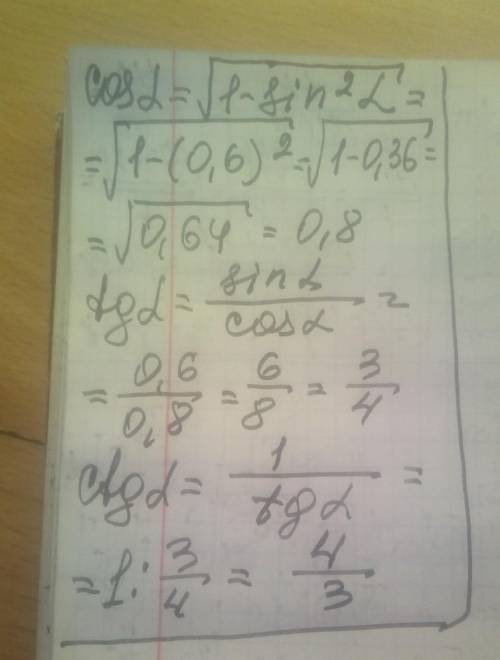 cos α = √(1 - sin² α) =
= √(1 - (0,6)²) = √(1 - 0,36) =
= √0,64 = 0,8
tg α = sin α / cos α =
= 0,6 / 0,8 = 6/8 = 3/4
ctg α = 1 / tg α =
= 1 : 3/4 = 4/3